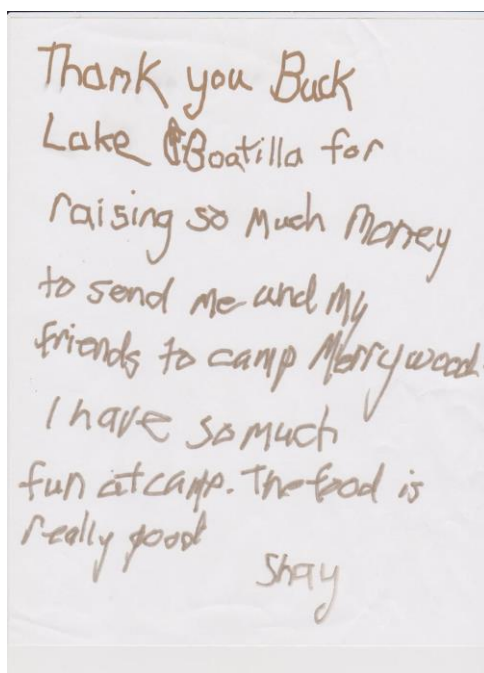 Thank you Buck
Lake Boatilla for
raising so much money
to send me and my
friends to camp Merrywood.
I have so much
fun at camp. The food is
really good
Shay